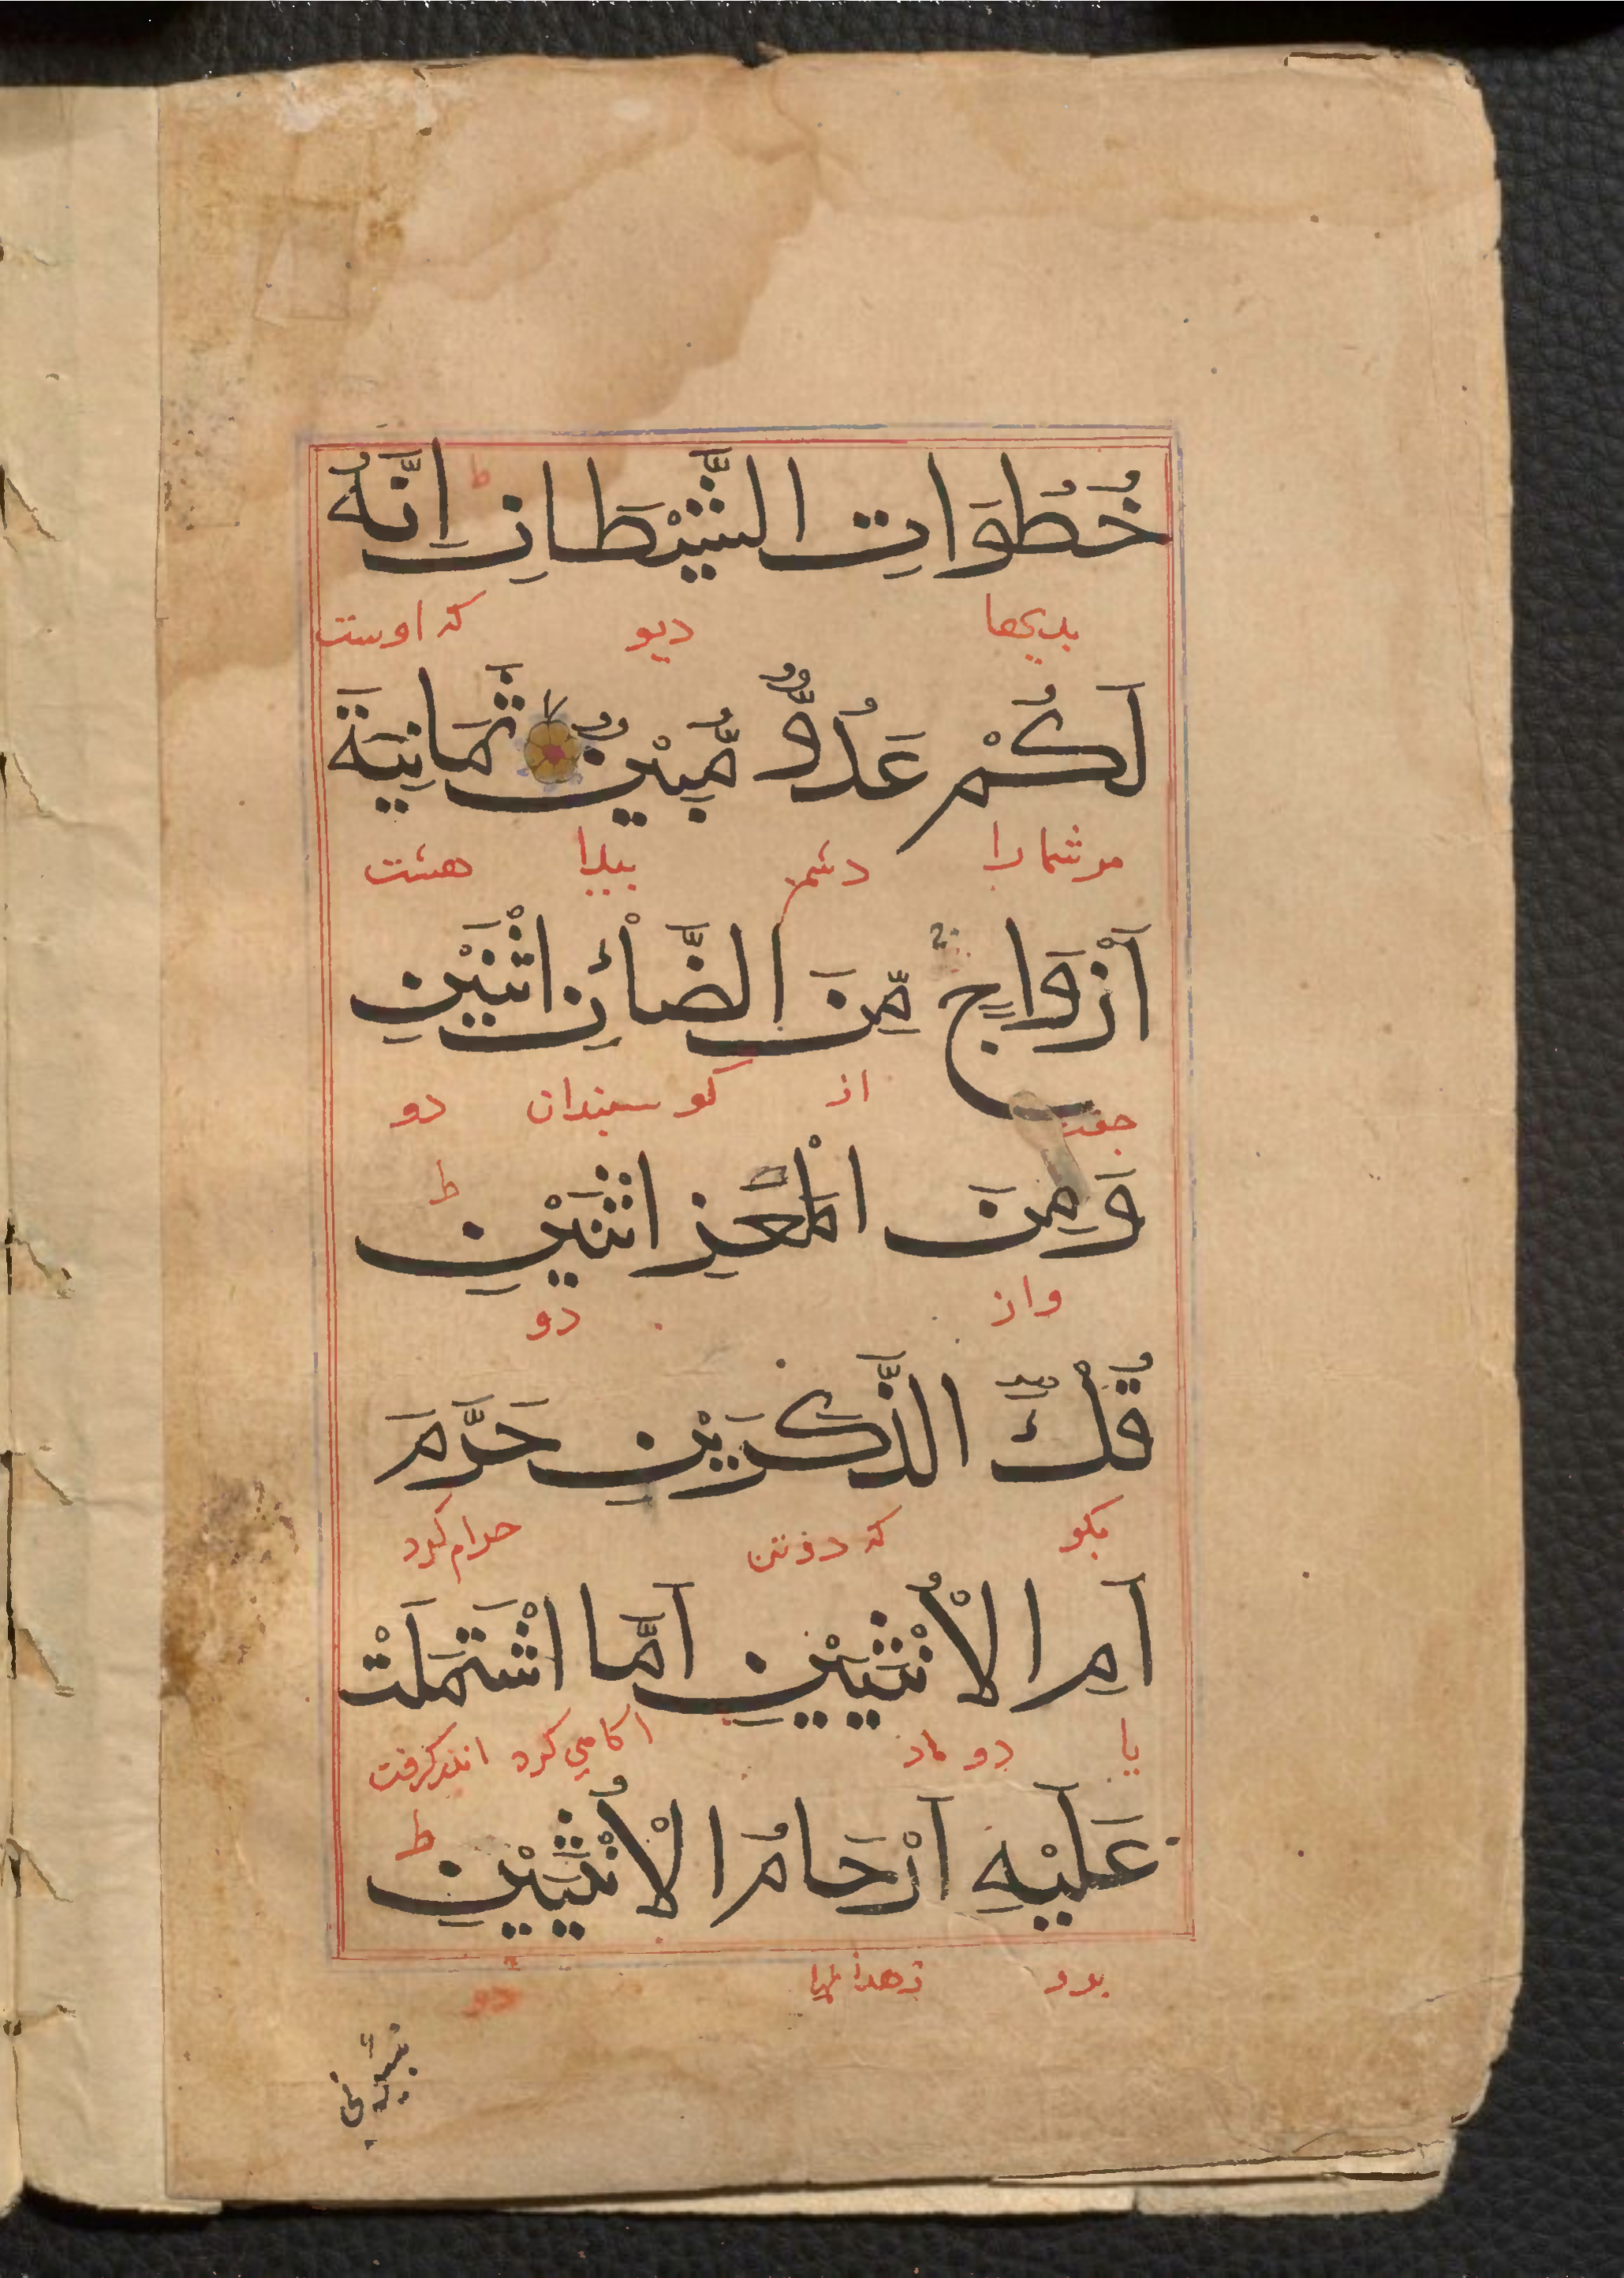 خُطُوَاتِ الشَّيْطَانِ ط اِنَّهُ
بدیها دیو که اوست
لَكُمْ عَدُوٌّ مُّبِيْنٌ ثَمَانِيَةَ
مر شما را دشمن پیدا هشت
اَزْوَاجٍ مِّنَ الضَّاْنِ اثْنَيْنِ
جفت از کوسبندان دو
وَمِنَ الْمَعْزِ اثْنَيْنِ ط
واز دو
قُلْ ءٰۤالذَّكَرَيْنِ حَرَّمَ
بکو که دو نر حرام کرد
اَمِ الْاُنْثَيَيْنِ اَمَّا اشْتَمَلَتْ
یا دو ماد اندر کرفت
عَلَيْهِ اَرْحَامُ الْاُنْثَيَيْنِ ط
برو دو
نَبِّئُونِي